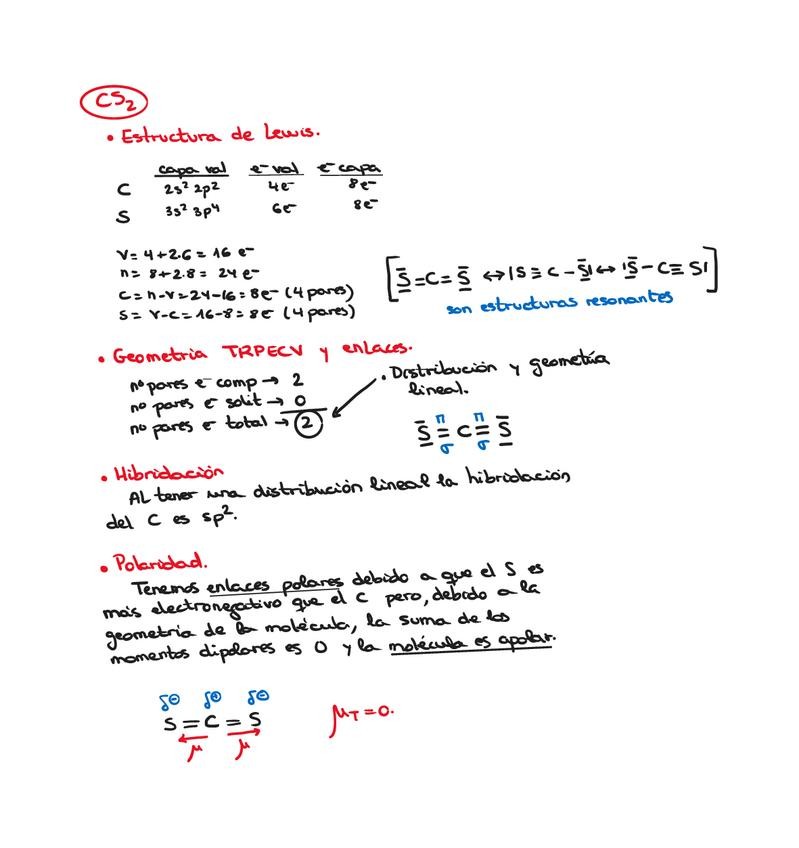 CS₂
• Estructura de Lewis.
capa val e⁻ val e⁻ capa
C 2s² 2p² 4e⁻ 8e⁻
S 3s² 3p⁴ 6e⁻ 8e⁻
V = 4+2·6 = 16 e⁻
n = 8+2·8 = 24 e⁻
C = n-v = 24-16 = 8e⁻ (4 pares)
S = V-C = 16-8 = 8e⁻ (4 pares)
[S̲̅=C=S̲̅ ↔ |S≡C-S̲̅| ↔ |S̲̅-C≡S|]
son estructuras resonantes
• Geometría TRPECV y enlaces.
nº pares e⁻ comp → 2
nº pares e⁻ solit → 0
nº pares e⁻ total → 2
• Distribución y geometría
lineal.
π π
S̲̅=C=S̲̅
σ σ
• Hibridación
Al tener una distribución lineal la hibridación
del C es sp².
• Polaridad.
Tenemos enlaces polares debido a que el S es
más electronegativo que el C pero, debido a la
geometría de la molécula, la suma de los
momentos dipolares es 0 y la molécula es apolar.
δ⊖ δ⊕ δ⊖
S=C=S
μ μ
μT=0.